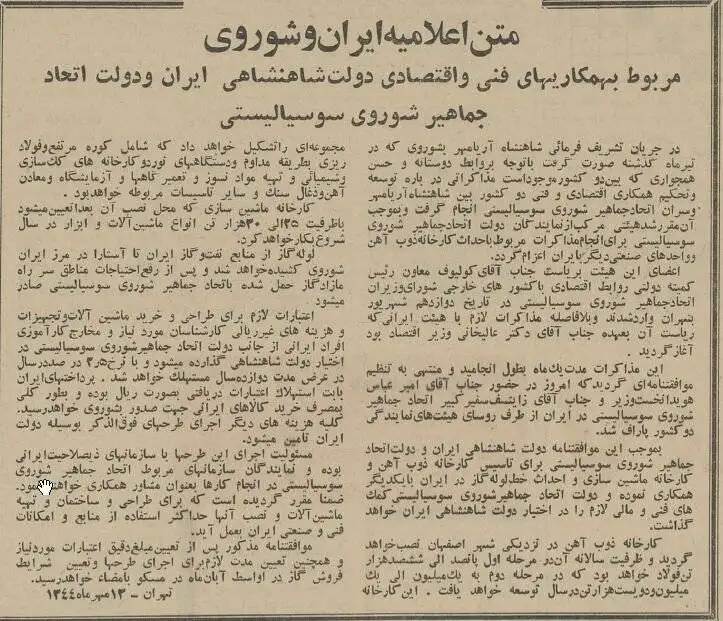 متن اعلامیه ایران و شوروی
مربوط بهمکاریهای فنی و اقتصادی دولت شاهنشاهی ایران و دولت اتحاد
جماهیر شوروی سوسیالیستی
در جریان تشریف فرمائی شاهنشاه آریامهر بشوروی که در
تیرماه گذشته صورت گرفت باتوجه بروابط دوستانه و حسن
همجواری که بین دو کشور موجود است مذاکراتی در باره توسعه
وتحکیم همکاری اقتصادی و فنی دو کشور بین شاهنشاه آریامهر
وسران اتحادجماهیر شوروی سوسیالیستی انجام گرفت وبموجب
آن مقرر شدهیئتی مرکب از نمایندگان دولت اتحادجماهیر شوروی
سوسیالیستی برای انجام مذاکرات مربوط باحداث کارخانه ذوب آهن
وواحدهای صنعتی دیگر بایران اعزام گردد.
اعضای این هیئت بریاست جناب آقای کولیوف معاون رئیس
کمیته دولتی روابط اقتصادی باکشور های خارجی شورای وزیران
اتحادجماهیر شوروی سوسیالیستی در تاریخ دوازدهم شهریور
بتهران واردشدند وبلافاصله مذاکرات لازم با هیئت ایرانی که
ریاست آن بعهده جناب آقای دکتر عالیخانی وزیر اقتصاد بود
آغاز گردید .
این مذاکرات مدت یک ماه بطول انجامید و منتهی به تنظیم
موافقتنامه‌ای گردید که امروز در حضور جناب آقای امیر عباس
هویدا نخست وزیر و جناب آقای زایتسف سفیر کبیر اتحاد جماهیر
شوروی سوسیالیستی در ایران از طرف روسای هیئت‌های نمایندگی
دو کشور پاراف شد.
بموجب این موافقتنامه دولت شاهنشاهی ایران و دولت اتحاد
جماهیر شوروی سوسیالیستی برای تاسیس کارخانه ذوب آهن و
کارخانه ماشین سازی و احداث خط لوله گاز در ایران بایکدیگر
همکاری نموده و دولت اتحاد جماهیر شوروی سوسیالیستی کمک
های فنی و مالی لازم را در اختیار دولت شاهنشاهی ایران خواهد
گذاشت.
کارخانه ذوب آهن در نزدیکی شهر اصفهان نصب خواهد
گردید و ظرفیت سالانه آن در مرحله اول پانصد الی ششصد هزار
تن فولاد خواهد بود که در مرحله دوم به یک میلیون الی یک
میلیون و دویست هزار تن در سال توسعه خواهد یافت . این کارخانه
مجموعه‌ای راتشکیل خواهد داد که شامل کوره مرتفع و فولاد
ریزی بطریقه مداوم ودستگاههای نورد و کارخانه های کک سازی
وشیمیائی و تهیه مواد نسوز و تعمیر گاهها و آزمایشگاه ومعادن
آهن وذغال سنگ و سایر تاسیسات مربوطه خواهد بود .
کارخانه ماشین سازی که محل نصب آن بعدا تعیین میشود
باظرفیت ۲۵ الی ۳۰ هزار تن انواع ماشین آلات و ابزار در سال
شروع بکار خواهد کرد.
لوله گاز از منابع نفت و گاز ایران تا آستارا در مرز ایران
شوروی کشیده خواهد شد و پس از رفع احتیاجات مناطق سر راه
مازاد گاز حمل شده باتحاد جماهیر شوروی سوسیالیستی صادر
میشود
اعتبارات لازم برای طراحی و خرید ماشین آلات و تجهیزات
و هزینه های غیر ریالی کارشناسان مورد نیاز و مخارج کار آموزی
افراد ایرانی از جانب دولت اتحاد جماهیر شوروی سوسیالیستی در
اختیار دولت شاهنشاهی گذارده میشود و با نرخ ۲٫۵ در صد در سال
در عرض مدت دوازده سال مستهلک خواهد شد . پرداختهای ایران
بابت استهلاک اعتبارات دریافتی بصورت ریال بوده و بطور کلی
بمصرف خرید کالاهای ایرانی جهت صدور بشوروی خواهد رسید.
کلیه هزینه های دیگر اجرای طرحهای فوق الذکر بوسیله دولت
ایران تامین میشود.
مسئولیت اجرای این طرحها با سازمانهای ذیصلاحیت ایرانی
بوده و نمایندگان سازمانهای مربوط اتحاد جماهیر شوروی
سوسیالیستی در انجام کارها بعنوان مشاور همکاری خواهند نمود.
ضمنا مقرر گردیده است که برای طراحی و ساختمان و تهیه
ماشین آلات و نصب آنها حداکثر استفاده از منابع و امکانات
فنی و صنعتی ایران بعمل آید.
موافقتنامه مذکور پس از تعیین مبلغ دقیق اعتبارات مورد نیاز
و همچنین تعیین مدت لازم برای اجرای طرحها وتعیین شرایط
فروش گاز در اواسط آبان ماه در مسکو بامضاء خواهد رسید.
تهران - ۱۳ مهر ماه ۱۳۴۴